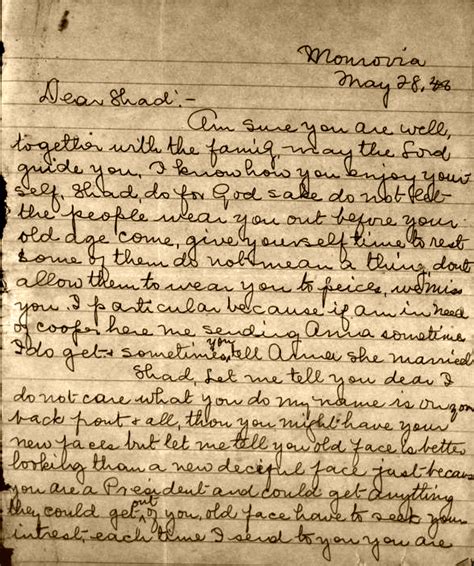 Monrovia
May 28, 48
Dear Shad:-
Am sure you are well,
together with the family, may the Lord
guide you. I know how you enjoy your
self. Shad, do for God sake do not let
the people wear you out before your
old age come, give yourself time to rest
some of them do not mean a thing, dont
allow them to wear you to peices, we miss
you. I particular because if am in need
of cooper here me sending Anna sometime
I do get & sometime you tell Anna she married
Shad, Let me tell you dear I
do not care what you do my name is on
back front & all, thou you might have your
new faces but let me tell you old face is better
looking than a new deciful face just because
you are a President and could get anything
they could get out of you, old face have to seek your
intrest, each time I send to you you are